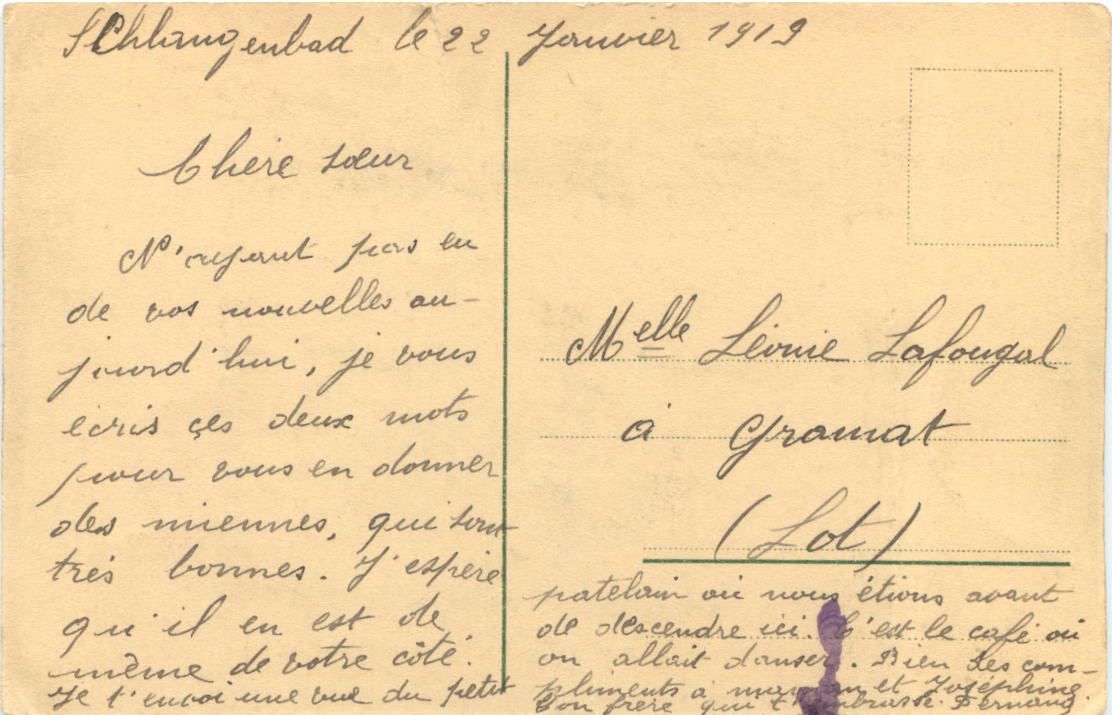 Schlangenbad le 22 Janvier 1919
Chère sœur
N'ayant pas eu
de vos nouvelles au-
jourd'hui, je vous
écris çes deux mots
pour vous en donner
des miennes, qui sont
très bonnes. J'espère
qu'il en est de
même de votre côté.
Je t'envoi une vue du petit
Melle Léonie Lafougal
à Gramat
(Lot)
patelain où nous étions avant
de descendre ici. C'est le café où
on allait danser. Bien des com-
pliments à maman et Joséphine.
Ton frère qui t'embrasse. Fernand